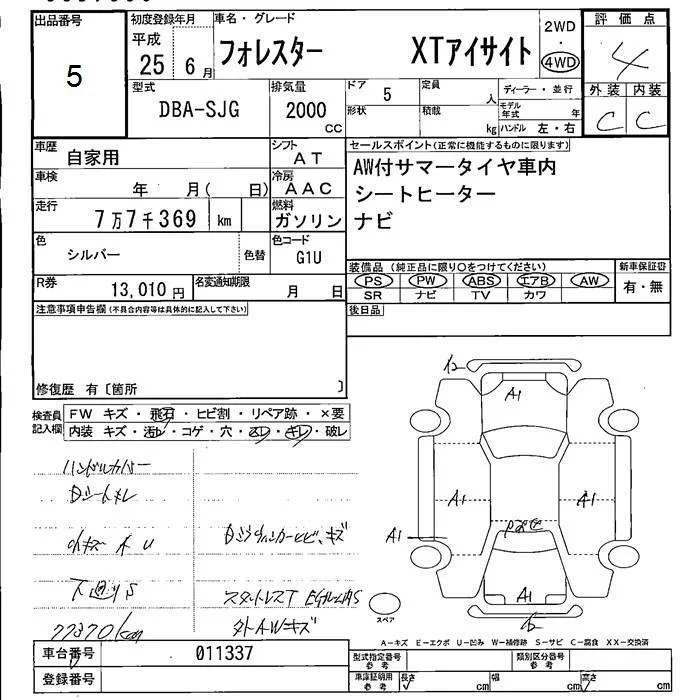 出品番号
5
初度登録年月
平成
25 6月
車名・グレード
フォレスター XTアイサイト
2WD
・
4WD
評価点
4
外装 内装
C C
型式
DBA-SJG
排気量
2000
CC
ドア
5
形状
定員
人
積載
kg
ディーラー・並行
モデル年式 年
ハンドル 左・右
車歴
自家用
シフト
AT
車検
年 月( 日)
冷房
AAC
走行
7万7千369 km
燃料
ガソリン
色
シルバー
色替
色コード
G1U
R券
13,010円
名変通知期限
月 日
セールスポイント(正常に機能するものに限ります)
AW付サマータイヤ車内
シートヒーター
ナビ
装備品(純正品に限り○をつけてください)
PS PW ABS エアB AW
SR ナビ TV カワ
新車保証書
有・無
後日品
注意事項申告欄(不具合内容等は具体的に記入して下さい)
修復歴 有〔箇所 〕
検査員記入欄
FW キズ・飛石・ヒビ割・リペア跡・×要
内装 キズ・汚レ・コゲ・穴・スレ・キレ・破レ
ハンドルカバー
Dシートキレ
小キズ
下廻りS
77370km
スタットレスT
外AWキズ
A1
A1
A1
A1
A1
スペア
A-キズ E-エクボ U-凹み W-補修跡 S-サビ C-腐食 XX-交換済
車台番号
011337
登録番号
型式指定番号
参考
類別区分番号
参考
車庫証明用
参考
長さ cm
幅 cm
高さ cm